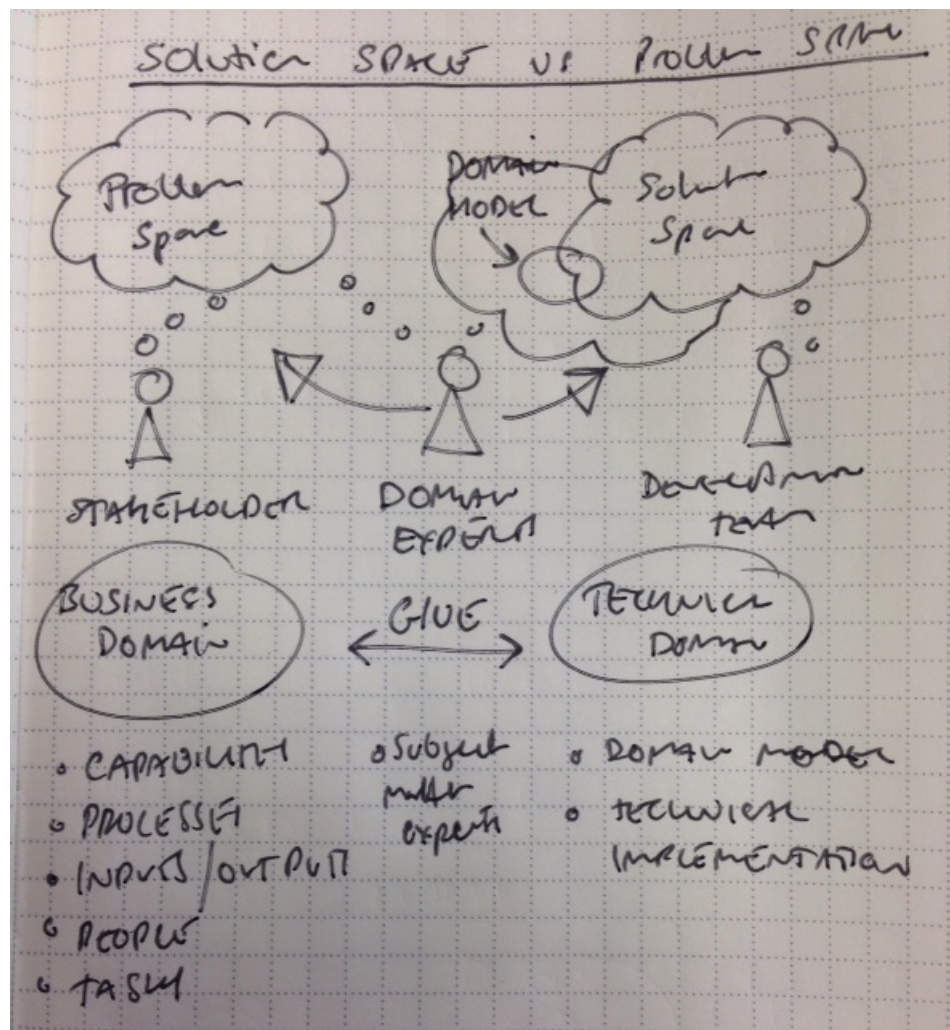 Solution SPACE vs Problem SPACE
Problem
Space
DOMAIN
MODEL
Solution
Space
STAKEHOLDER
DOMAIN
EXPERTS
DEVELOPMENT
TEAM
BUSINESS
DOMAIN
GLUE
TECHNICAL
DOMAIN
CAPABILITY
PROCESSES
INPUTS / OUTPUTS
PEOPLE
TASKS
Subject
matter
experts
DOMAIN MODEL
TECHNICAL
IMPLEMENTATION